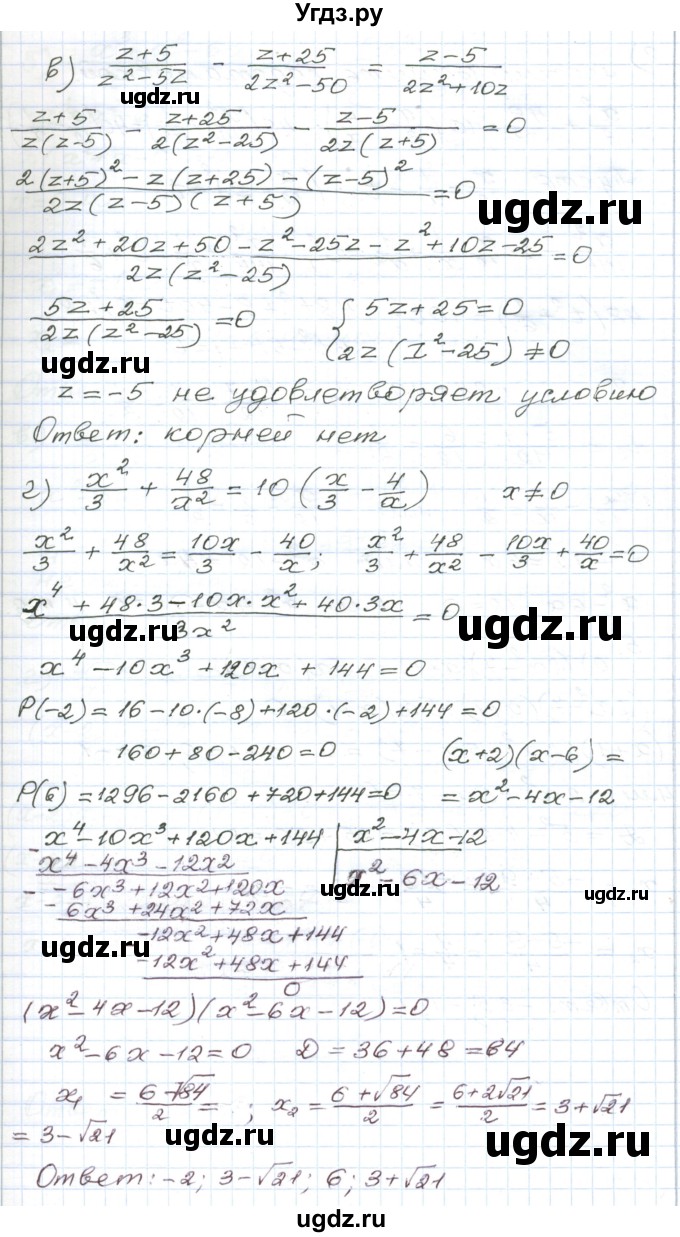 Угдз.ру
в) (z+5)/(z²-5z) - (z+25)/(2z²-50) = (z-5)/(2z²+10z)
ugdz.ru
(z+5)/(z(z-5)) - (z+25)/(2(z²-25)) - (z-5)/(2z(z+5)) = 0
(2(z+5)² - z(z+25) - (z-5)²)/(2z(z-5)(z+5)) = 0
ugdz.ru
(2z²+20z+50-z²-25z-z²+10z-25)/(2z(z²-25)) = 0
(5z+25)/(2z(z²-25)) = 0 { 5z+25=0
2z(z²-25)≠0
ugdz.ru
z=-5 не удовлетворяет условию
Ответ: корней нет
г) x²/3 + 48/x² = 10(x/3 - 4/x) x≠0
x²/3 + 48/x² = 10x/3 - 40/x; x²/3 + 48/x² - 10x/3 + 40/x = 0
(x⁴+48·3-10x·x²+40·3x)/(3x²) = 0
ugdz.ru ugdz.ru
x⁴-10x³+120x+144=0
P(-2)=16-10·(-8)+120·(-2)+144=0
160+80-240=0 (x+2)(x-6)=
P(6)=1296-2160+720+144=0 =x²-4x-12
-x⁴-10x³+120x+144 | x²-4x-12
x⁴-4x³-12x² x²-6x-12
ugdz.ru ugdz.ru
- -6x³+12x²+120x
-6x³+24x²+72x
-12x²+48x+144
ugdz.ru
-12x²+48x+144
0
(x²-4x-12)(x²-6x-12)=0
x²-6x-12=0 D=36+48=84
x₁ = (6-√84)/2 = ; x₂ = (6+√84)/2 = (6+2√21)/2 = 3+√21
=3-√21
ugdz.ru ugdz.ru
Ответ: -2; 3-√21; 6; 3+√21
ugdz.ru